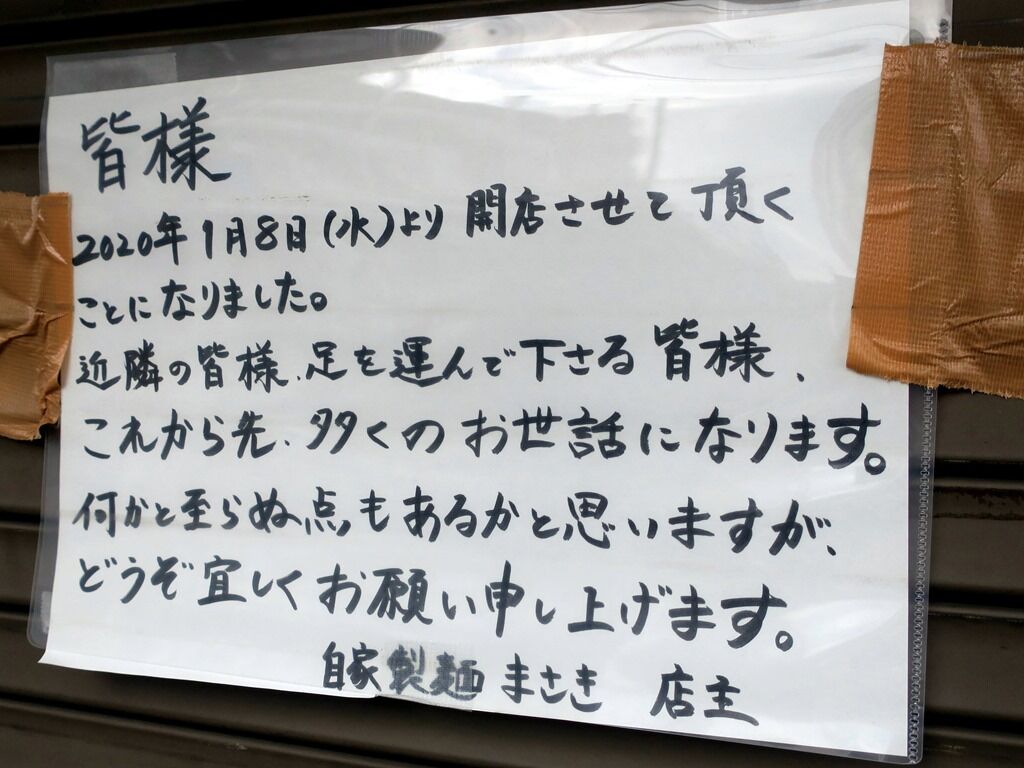 皆様
2020年1月8日(水)より開店させて頂く
ことになりました。
近隣の皆様、足を運んで下さる皆様、
これから先、多くのお世話になります。
何かと至らぬ点もあるかと思いますが、
どうぞ宜しくお願い申し上げます。
自家製麺 まさき 店主